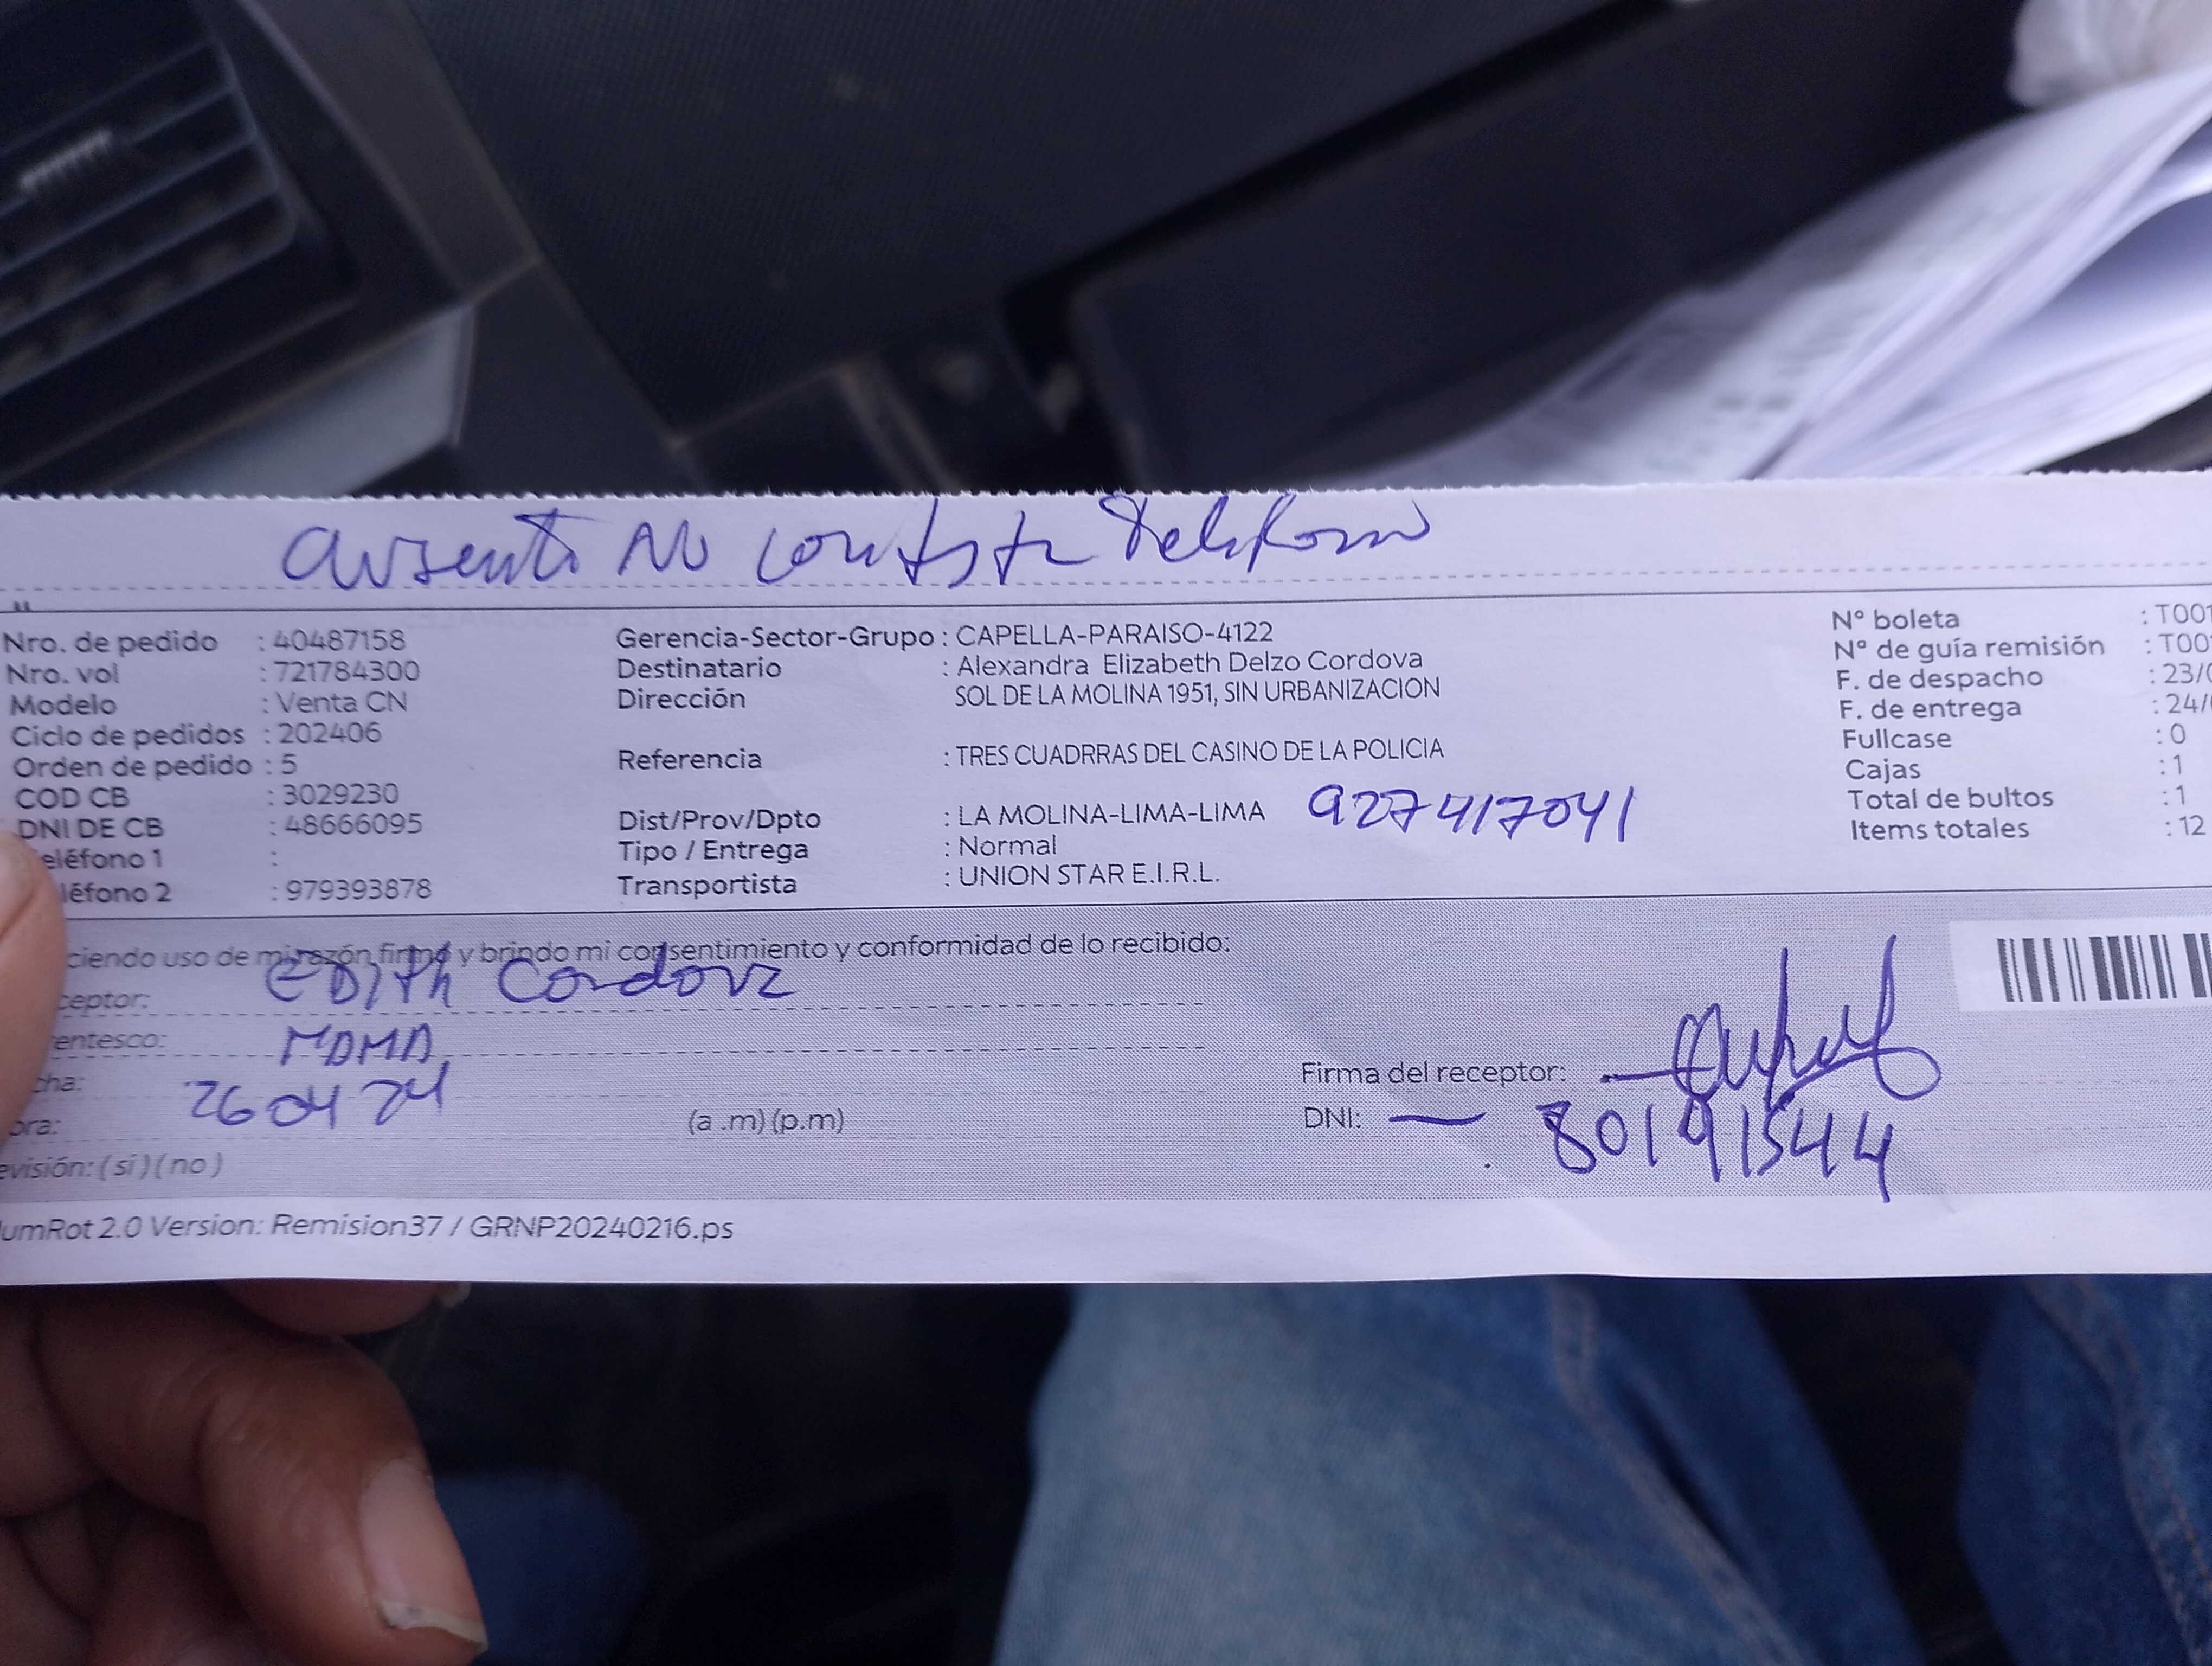 ausente no contesta telefono
Nro. de pedido : 40487158
Nro. vol : 721784300
Modelo : Venta CN
Ciclo de pedidos : 202406
Orden de pedido : 5
COD CB : 3029230
DNI DE CB : 48666095
eléfono 1 :
léfono 2 : 979393878
Gerencia-Sector-Grupo : CAPELLA-PARAISO-4122
Destinatario : Alexandra Elizabeth Delzo Cordova
Dirección SOL DE LA MOLINA 1951, SIN URBANIZACION
Referencia : TRES CUADRRAS DEL CASINO DE LA POLICIA
Dist/Prov/Dpto : LA MOLINA-LIMA-LIMA 927417041
Tipo / Entrega : Normal
Transportista : UNION STAR E.I.R.L.
N° boleta : T001
N° de guía remisión : T00
F. de despacho : 23/0
F. de entrega : 24/
Fullcase : 0
Cajas : 1
Total de bultos : 1
Items totales : 12
ciendo uso de mi razón firmo y brindo mi consentimiento y conformidad de lo recibido:
ceptor: EDITH Cordova
entesco: MAMA
cha: 26 04 24
ora: (a .m) (p.m)
evisión: ( si ) ( no )
Firma del receptor:
DNI: 80191544
umRot 2.0 Version: Remision37 / GRNP20240216.ps